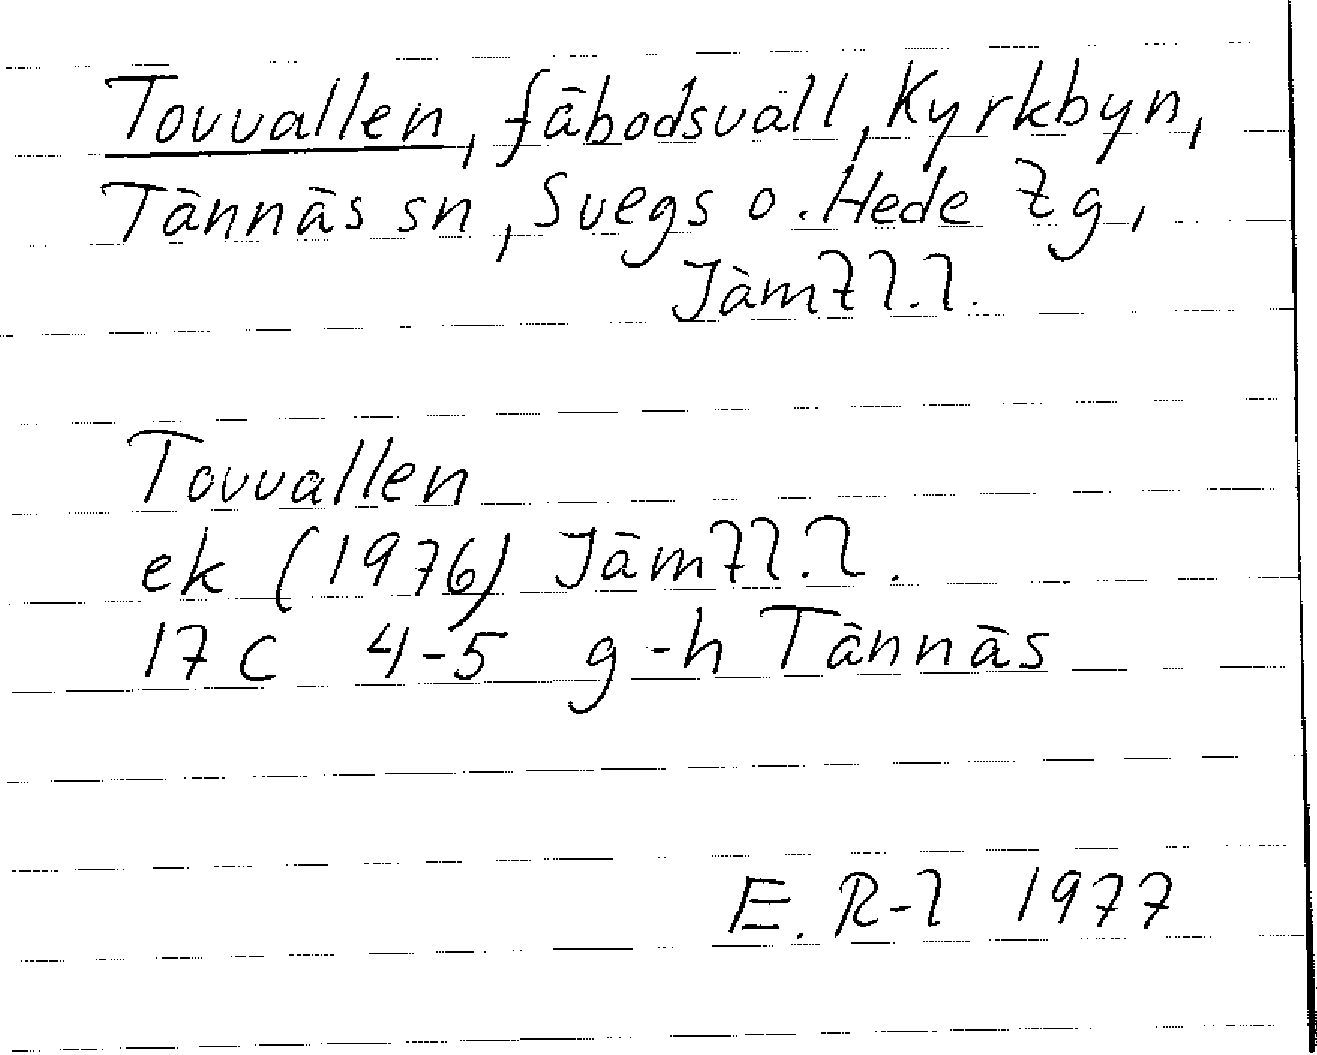 Tovvallen, fäbodsvall, Kyrkbyn,
Tännäs sn, Svegs o. Hede tg,
Jämtl.l.
Tovvallen
ek (1976) Jämtl.l.
17C 4-5 g-h Tännäs
E. R-l 1977